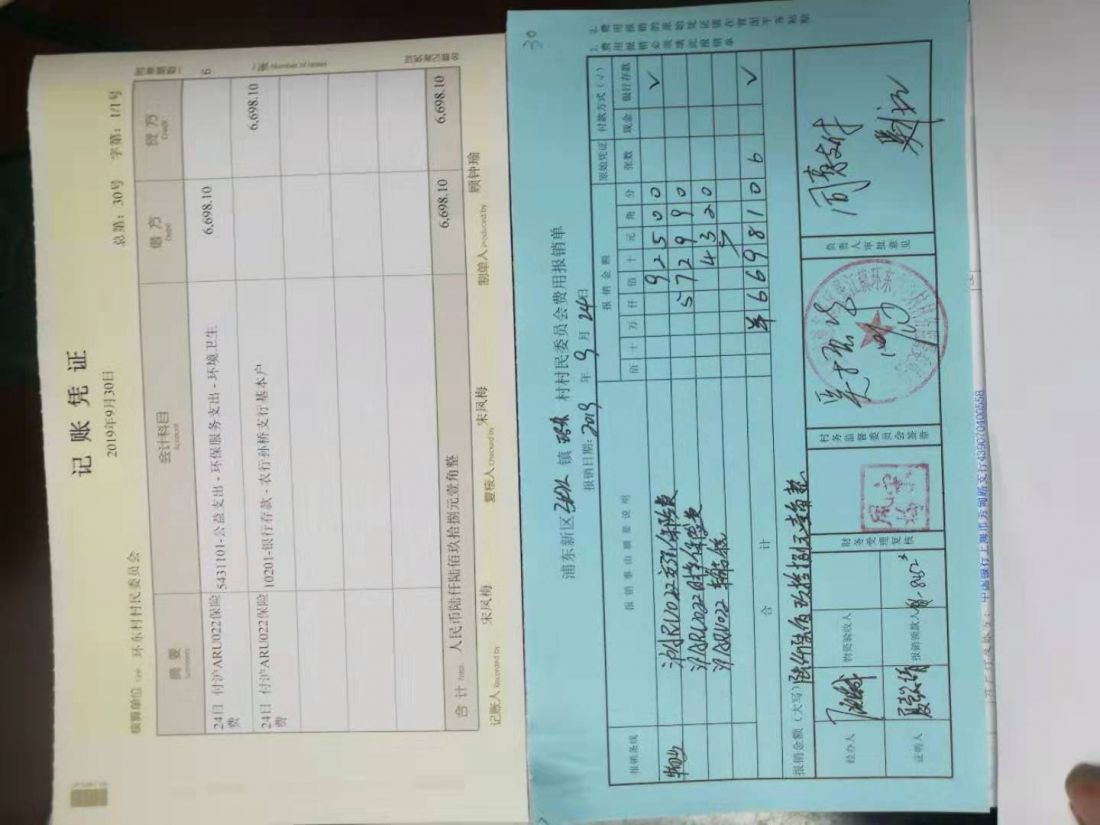 记账凭证
2019年9月30日
总第：30号 字第：1/1号
核算单位 环东村村民委员会
摘要 会计科目 借方 贷方
Summary Account Debit Credit
24日 付沪ARU022保险费 5431101-公益支出-环保服务支出-环境卫生 6,698.10 6
24日 付沪ARU022保险费 10201-银行存款-农行孙桥支行基本户 6,698.10
合计 人民币陆仟陆佰玖拾捌元壹角整 6,698.10 6,698.10
记账人 Recorded by 宋凤梅 复核人 Checked by 宋凤梅 制单人 Produced by 顾钟瑜
30
浦东新区 张江 镇 环东 村村民委员会费用报销单
报销日期：2019 年 9 月 24 日
报销条线 报销事由摘要说明 报销金额 原始凭证 付款方式（√）
佰 十 万 仟 佰 十 元 角 分 张数 现金 银行存款
沪ARU022 92500 √
沪ARU022 572990
沪ARU022 4320
合计 ¥669810 6 √
报销金额（大写） 陆仟陆佰玖拾捌元壹角整
经办人 物资验收人 财务受理复核 村务监督委员会签章 负责人审批意见
证明人 报销领款人
同意支付
1、费用报销必须填此报销单
2、费用报销的原始凭证请在背面平齐粘贴